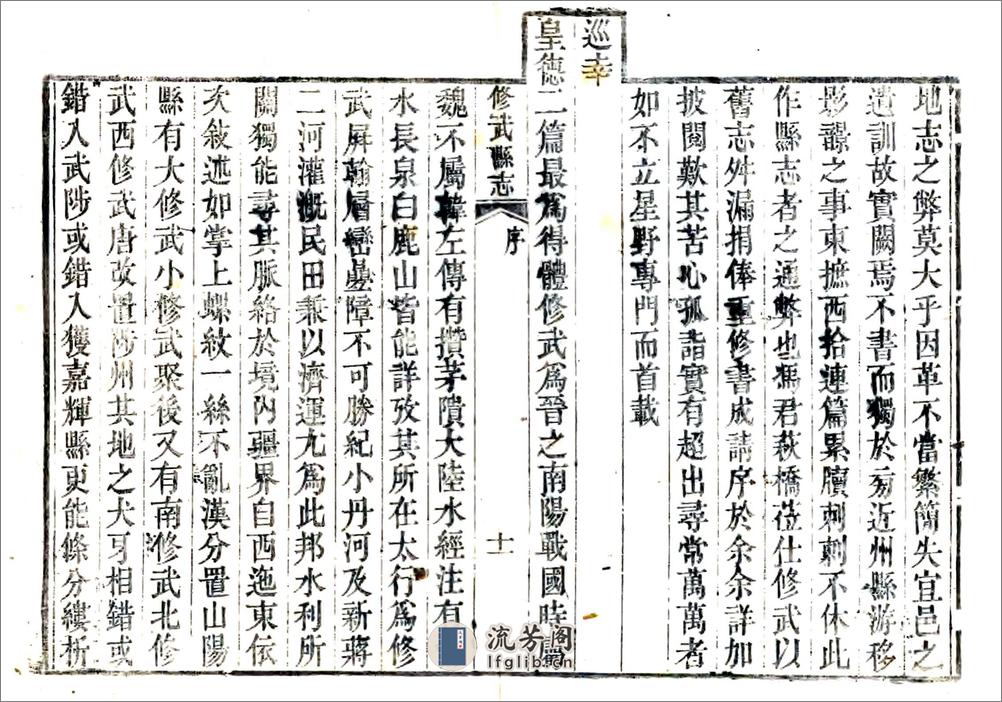 地志之弊莫大乎因革不當繁簡失宜邑之
遺訓故實闕焉不書而獨於旁近州縣游移
影響之事東摭西拾連篇累牘刺刺不休此
作縣志者之通弊也馮君萩橋莅仕修武以
舊志舛漏捐俸重修書成請序於余余詳加
披閱歎其苦心孤詣實有超出尋常萬萬者
如不立星野專門而首載
巡幸
皇德二篇最為得體修武為晉之南陽戰國時屬
修武縣志
序
十
魏不屬韓左傳有攢茅隤大陸水經注有
水長泉白鹿山皆能詳攷其所在太行為修
武屏翰層巒疊障不可勝紀小丹河及新蔣
二河灌溉民田兼以濟運尤為此邦水利所
關獨能尋其脈絡於境內疆界自西迤東依
次敍述如掌上螺紋一絲不亂漢分置山陽
縣有大修武小修武聚後又有南修武北修
武西修武唐改置陟州其地之犬牙相錯或
錯入武陟或錯入獲嘉輝縣更能條分縷析
流芳阁
lfglib.cn